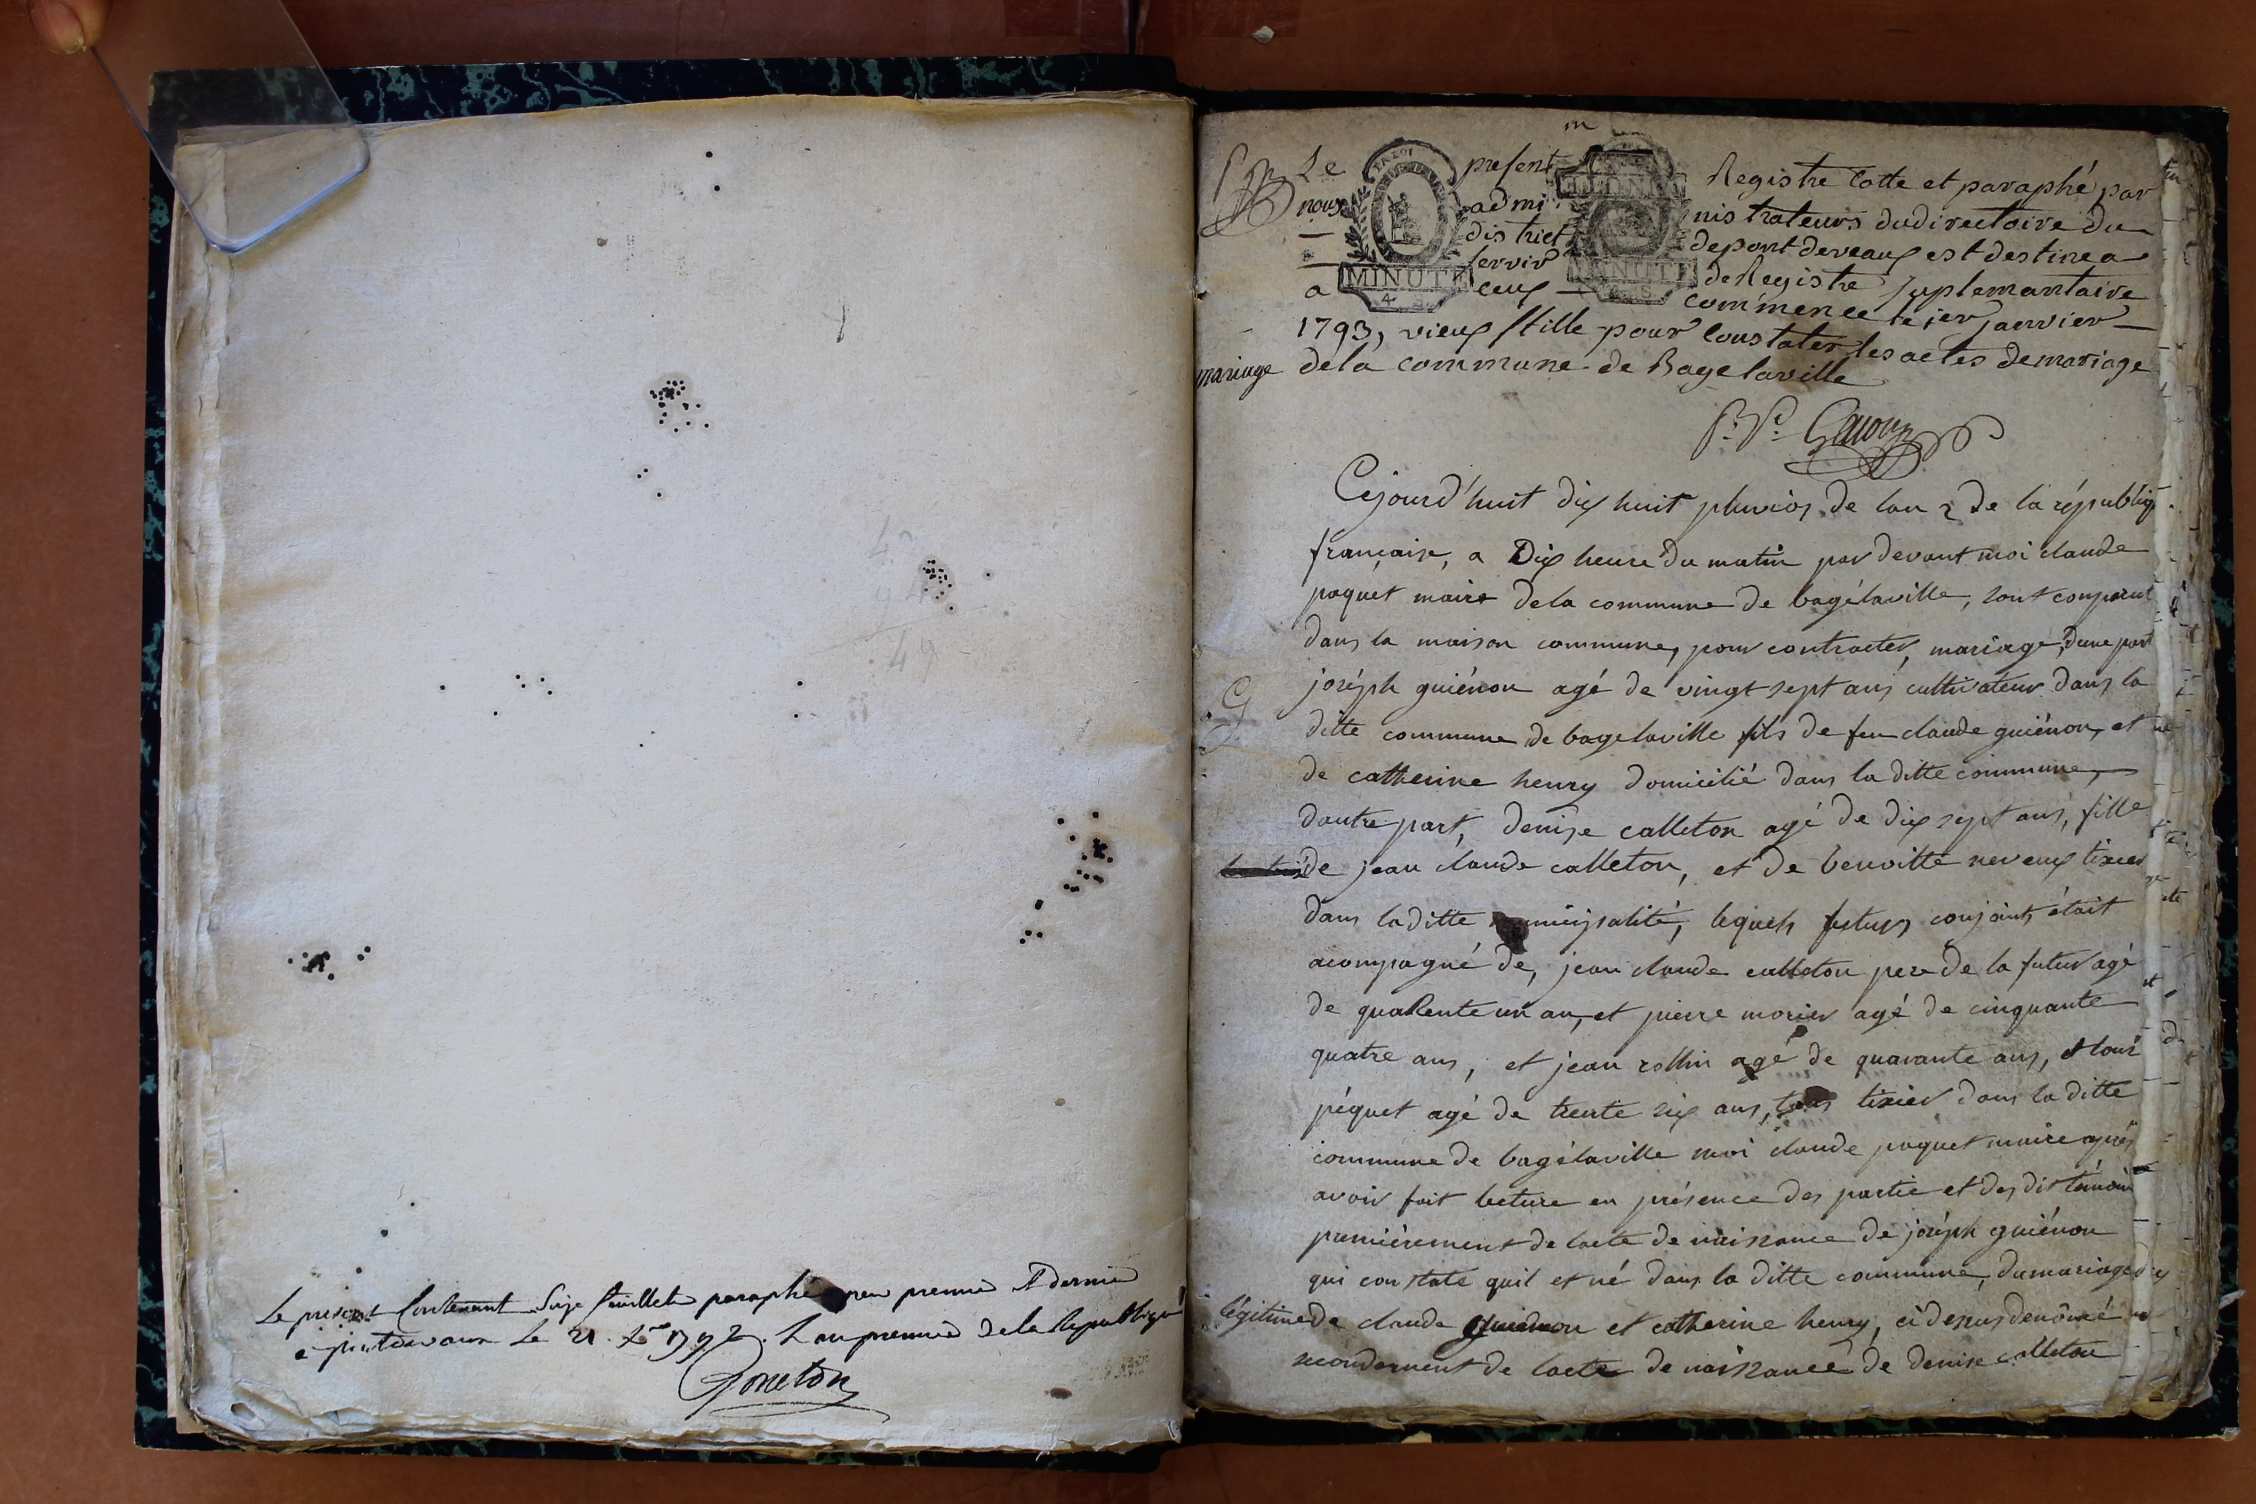 Le present Contenant Seize feuillets paraphé par premier & dernier
à pontdevaux Le 21 Xbre 1792. L'an premier dela Republique
Poncton
Le present Registre Cotte et paraphé par
nous admi nistrateurs dudirectoire du
district depontdevaux est destine a
servir deRegistre suplemantaire
a ceux commence le 1er janvier
1793, vieux stille pour Constater les actes demariage
mariage dela commune de Bagelaville
Cejourd'huit dix huit pluvios de lan 2 de la républiq
française, a Dix heure du matin par devant moi claude
paquet maire dela commune de bagélaville, sont comparut
dans la maison commune, pour contracter, mariage, dune part
joséph guiénon agé de vingt sept ans cultivateur dans la
ditte commune de bagelaville fils de feu claude guiénon, et
de catherine henry domicilié dans la ditte commune,
dautre part, denise calleton agé de dix sept ans, fille
de jean claude calleton, et de benoitte neveux tixier
dans laditte municipalité, lequels futurs conjoints était
acompagné de, jean claude calleton pere de la futur agé
de quaRente un an, et pierre morier agé de cinquante
quatre ans, et jean rollin agé de quarante ans, et loui
péquet agé de trente six ans, tous tixier dans la ditte
commune de bagélaville moi claude paquet maire aprés
avoir fait lecture en présence des partie et des dis témoin
premiérement de lacte de naissance de joséph guiénon
qui constate quil et né dans la ditte commune, dumariage
légitime de claude guiénon et catherine henry, ci desus denômé
secondement de lacte de naissance de denise calleton